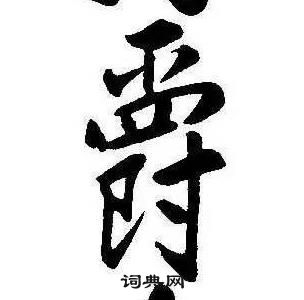 爵
词典网